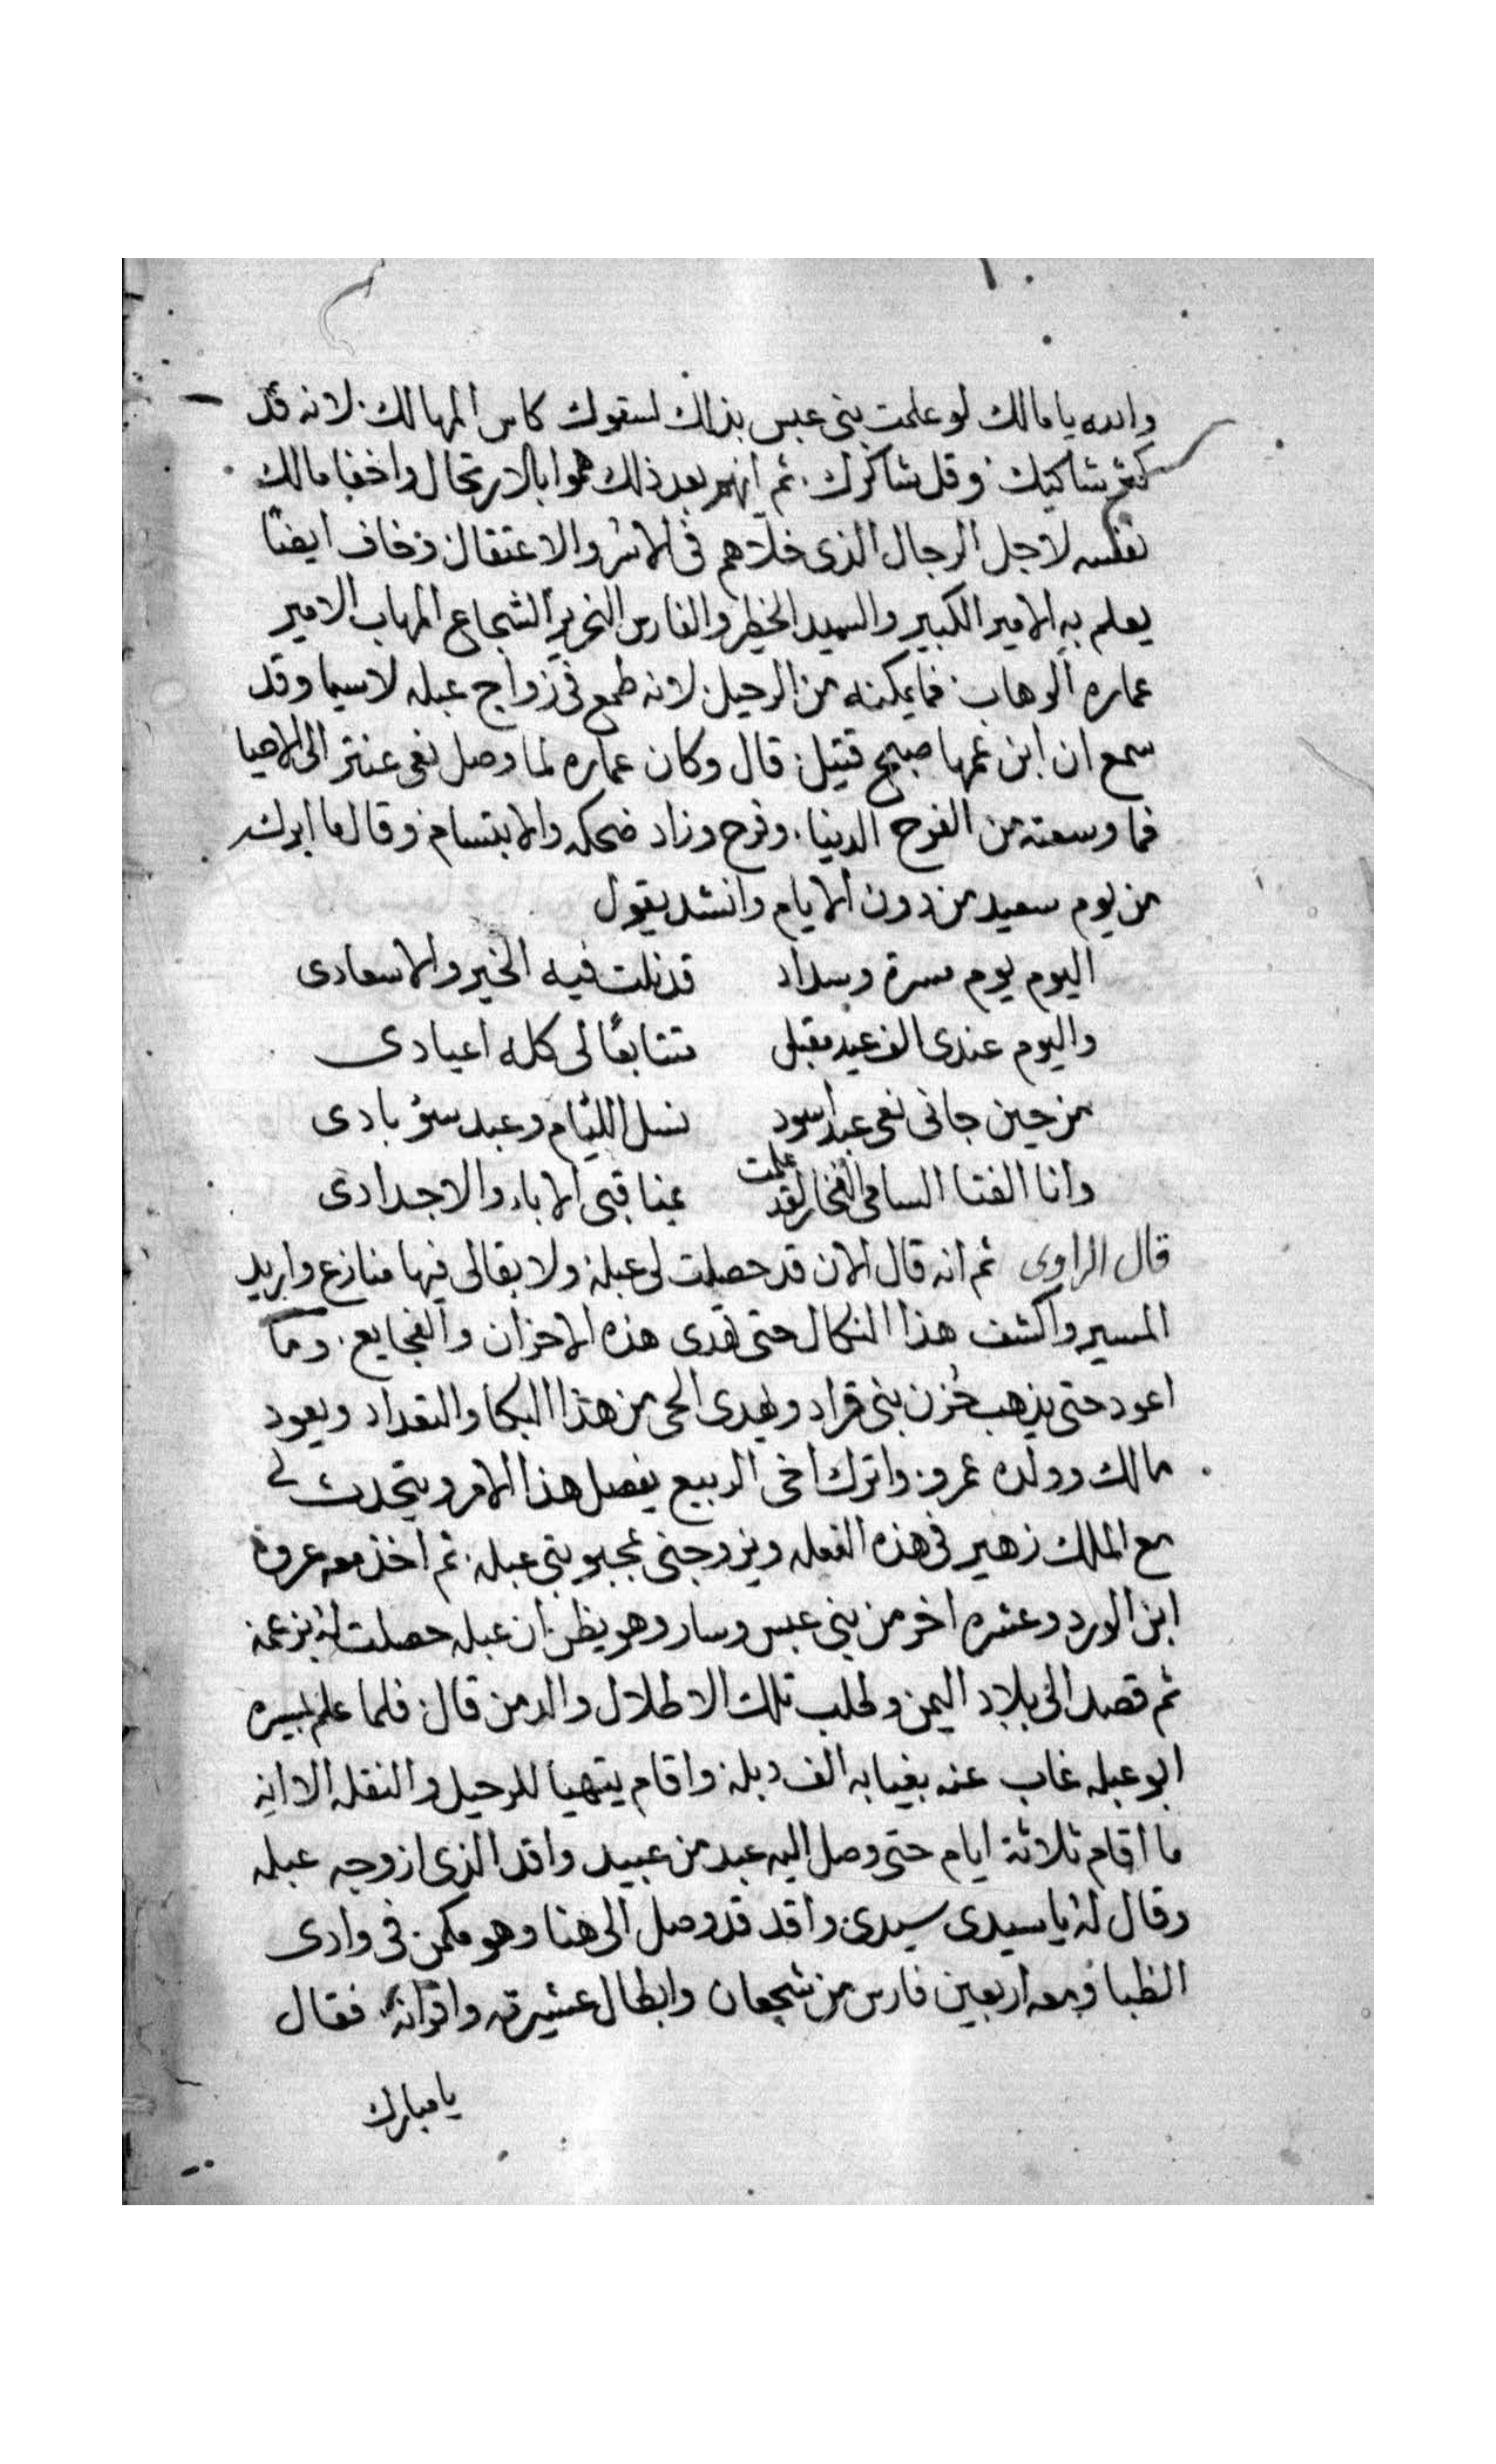 والله يا مالك لو علمت بنى عبس بذلك لسقوك كاس المهالك لانه قد
كثر شاكيك وقل شاكرك ثم انهم بعد ذلك هموا بالارتحال واخفا مالك
نفسه لاجل الرجال الذى خلاهم فى الاسر والاعتقال وخاف ايضًا
يعلم به الامير الكبير والسيد الخطير والفارس النحرير الشجاع المهاب الامير
عماره الوهاب فما يمكنه من الرحيل لانه طمع فى زواج عبله لاسيما وقد
سمع ان ابن عمها صبح قتيل قال وكان عماره لما وصل نعى عنتر الى الاحيا
فما وسعته من الفرح الدنيا وفرح وزاد ضحكه والابتسام وقال ما ابرك
من يوم سعيد من دون الايام وانشد يقول
اليوم يوم مسرة وسداد قد نلت فيه الخير والاسعادى
واليوم عندى الف عيد مقبل متتابعًا لى كله اعيادى
من حين جانى نعى عبد اسود نسل الليام وعبد سؤ بادى
وانا الفتا السامى الفخار لقد علمت بمناقبى الاباء والاجدادى
قال الراوى ثم انه قال الان قد حصلت لى عبلة ولا بقالى فيها منازع واريد
المسير واكشف هذا النكال حتى تهدى هذه الاحزان والفجايع وما
اعود حتى يذهب حُزن بنى قراد ويهدى الحى من هذا البكا والتعداد ويعود
مالك وولده عمرو واترك اخى الربيع يفصل هذا الامر ويتحدث لى
مع الملك زهير فى هذه الفعله ويزوجنى بمحبوبتى عبله ثم اخذ معه عروة
ابن الورد وعشره اخر من بنى عبس وسار وهو يظن ان عبله حصلت له بزعمه
ثم قصد الى بلاد اليمن وطلب تلك الاطلال والدمن قال فلما علم بمسيره
ابو عبله غاب عنه بغيابه الف دبلة واقام يتهيا للرحيل والنقله الا انه
ما اقام ثلاثة ايام حتى وصل اليه عبد من عبيد واقد الذى ازوجه عبله
وقال له يا سيدى سيدى واقد قد وصل الى هنا وهو مكمن فى وادى
الظبا ومعه اربعين فارس من شجعان وابطال عشيرته واقرانه فقال
يا مبارك